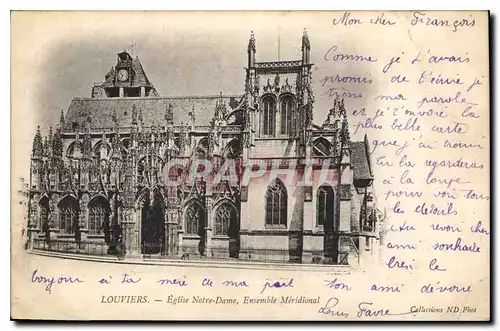 Mon cher François
Comme je t'avais
promis de t'écrire je
tiens ma parole
et je t'envoie la
plus belle carte
que j'ai trouvé
tu la regarderas
à la loupe
pour voir tous
les détails
Au revoir mon
ami souhaite
bien le
bonjour à ta mère de ma part ton ami dévoué
Louis Favre
LOUVIERS. — Église Notre-Dame, Ensemble Méridional
Collections ND Phot
CPARAMA.COM